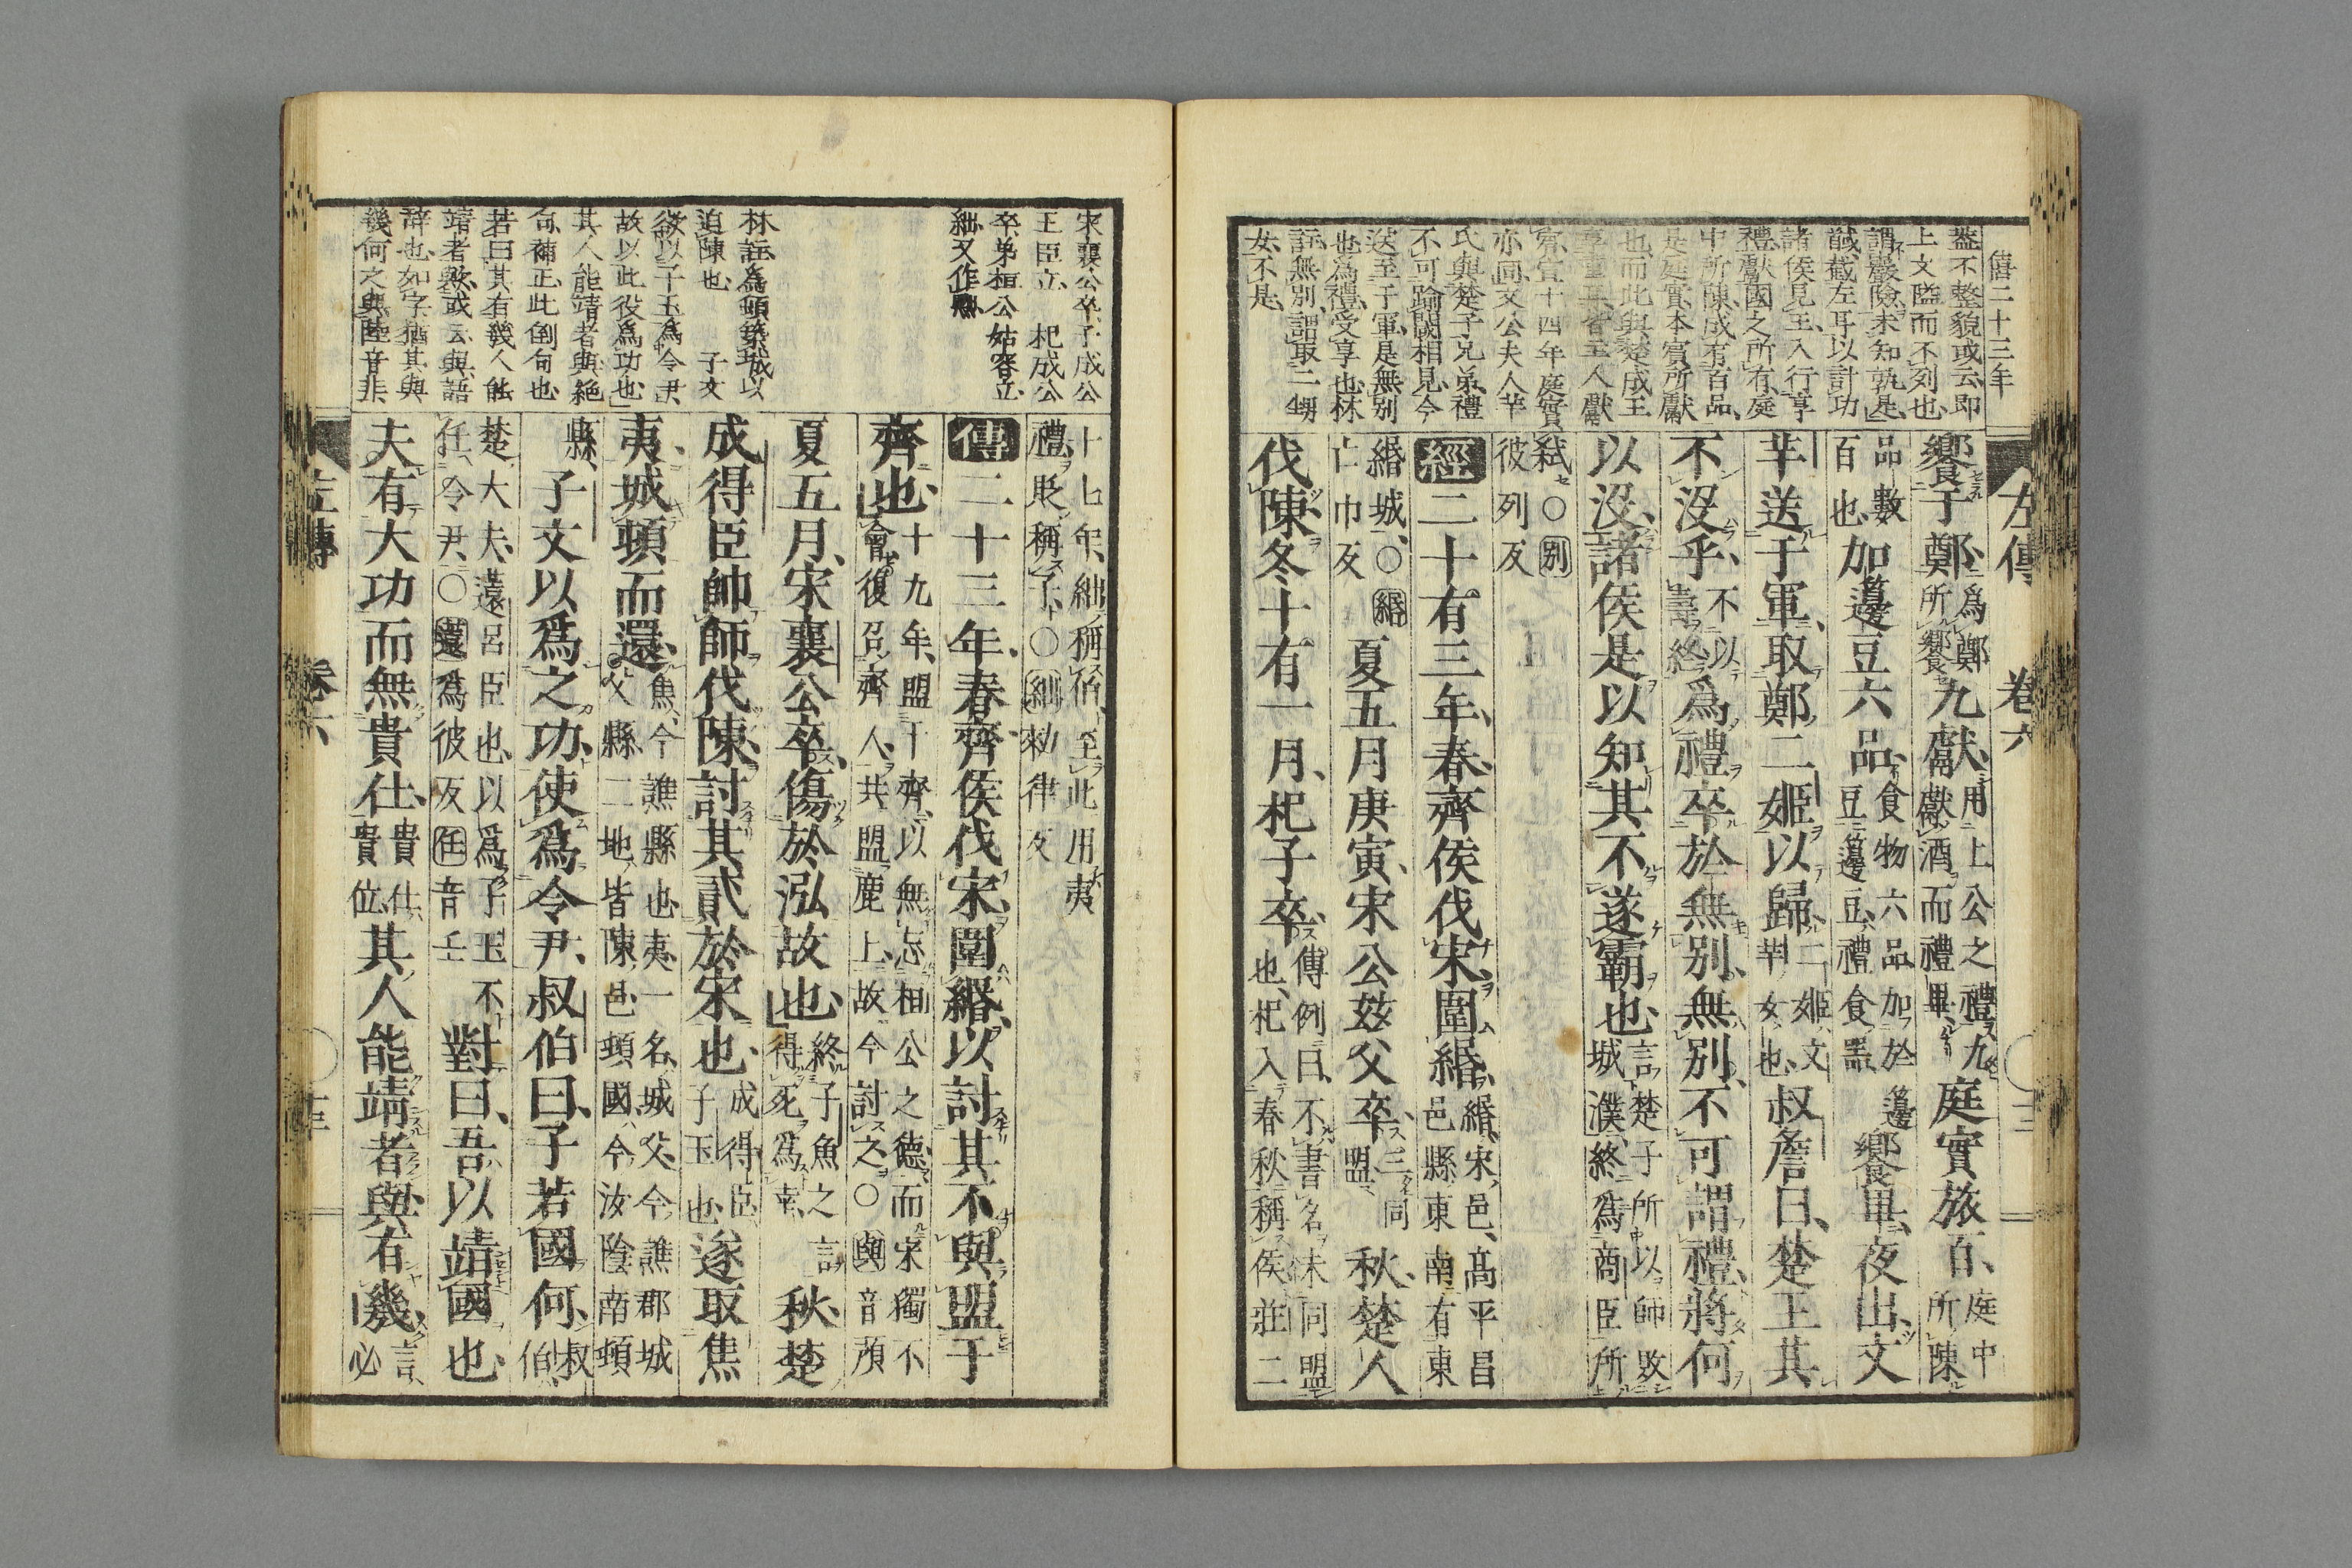 僖二十三年
蓋不整貌或云即
上文隘而不列也
謂巖險未知孰是
馘截左耳以計功
諸侯見王入行享
禮獻國之所有庭
中所陳成有百品
是庭實本賓所獻
也而此與楚成王
享重耳皆主人獻
賓宣十四年庭實
亦同文公夫人羋
氏與楚子兄弟禮
不可踰閾相見今
送至于軍是無別
也爲禮受享也林
註無別謂取二甥
女不是
左傳 卷六 三
饗于鄭爲鄭所饗九獻用上公之禮九獻酒而禮畢庭實旅百庭中所陳
品數百也加籩豆六品食物六品加於籩豆籩豆禮食器饗畢夜出文
羋送于軍取鄭二姬以歸二姬文羋女也叔詹曰楚王其
不沒乎不以壽終爲禮卒於無別無別不可謂禮將何
以沒諸侯是以知其不遂霸也言楚子所以師敗城濮終爲商臣所
弑○別彼列反
經二十有三年春齊侯伐宋圍緡緡宋邑高平昌邑縣東南有東
緡城○緡亡巾反夏五月庚寅宋公兹父卒三同盟秋楚人
伐陳冬十有一月杞子卒傳例曰不書名未同盟也杞入春秋稱侯莊二
宋襄公卒子成公
王臣立 杞成公
卒弟桓公姑容立
絀又作黜
林註爲頓築城以
迫陳也 子文
欲以子玉爲令尹
故以此役爲功也
其人能靖者與絕
句補正此倒句也
若曰其有幾人能
靖者歟或云與語
辭也如字猶其與
幾何之與陸音非
十七年絀稱伯至此用夷
禮貶稱子○絀勑律反
傳二十三年春齊侯伐宋圍緡以討其不與盟于
齊也十九年盟于齊以無忘桓公之德而宋獨不會復召齊人共盟鹿上故今討之○與音預
夏五月宋襄公卒傷於泓故也終子魚之言得死爲幸秋楚
成得臣帥師伐陳討其貳於宋也成得臣子玉也遂取焦
夷城頓而還焦今譙縣也夷一名城父今譙郡城父縣二地皆陳邑頓國今汝陰南頓
縣子文以爲之功使爲令尹叔伯曰子若國何叔伯
楚大夫薳呂臣也以爲子玉不任令尹○薳爲彼反任音壬對曰吾以靖國也
夫有大功而無貴仕貴仕貴位其人能靖者與有幾言必
左傳 卷六